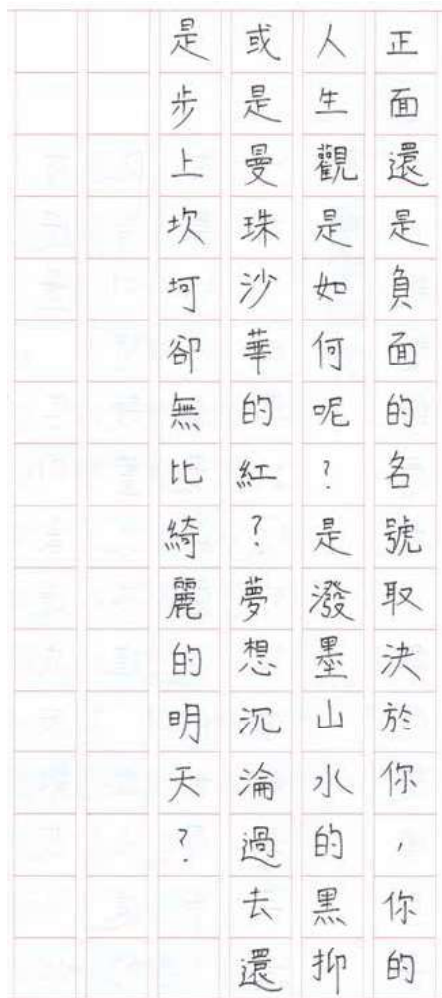 正面還是負面的名號取決於你，你的
人生觀是如何呢？是潑墨山水的黑抑
或是曼珠沙華的紅？夢想沉淪過去還
是步上坎坷卻無比綺麗的明天？